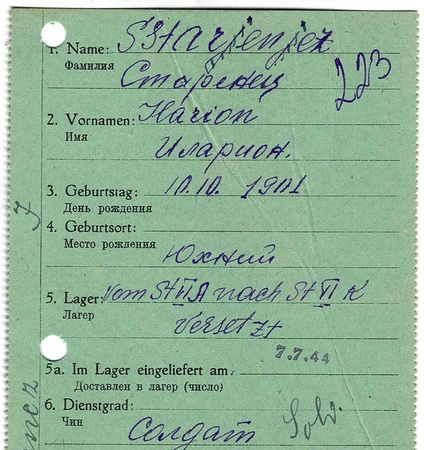 1. Name: SStarjenjez
Фамилия
Старенец
223
2. Vornamen: Ilarion
Имя
Иларион.
3. Geburtstag: 10.10. 1901
День рождения
4. Geburtsort:
Место рождения
Юхний
5. Lager: vom St VI A nach St VI K
Лагер versetzt
7.7.44
5a. Im Lager eingeliefert am:
Доставлен в лагер (число)
6. Dienstgrad: Sold.
Чин Солдат